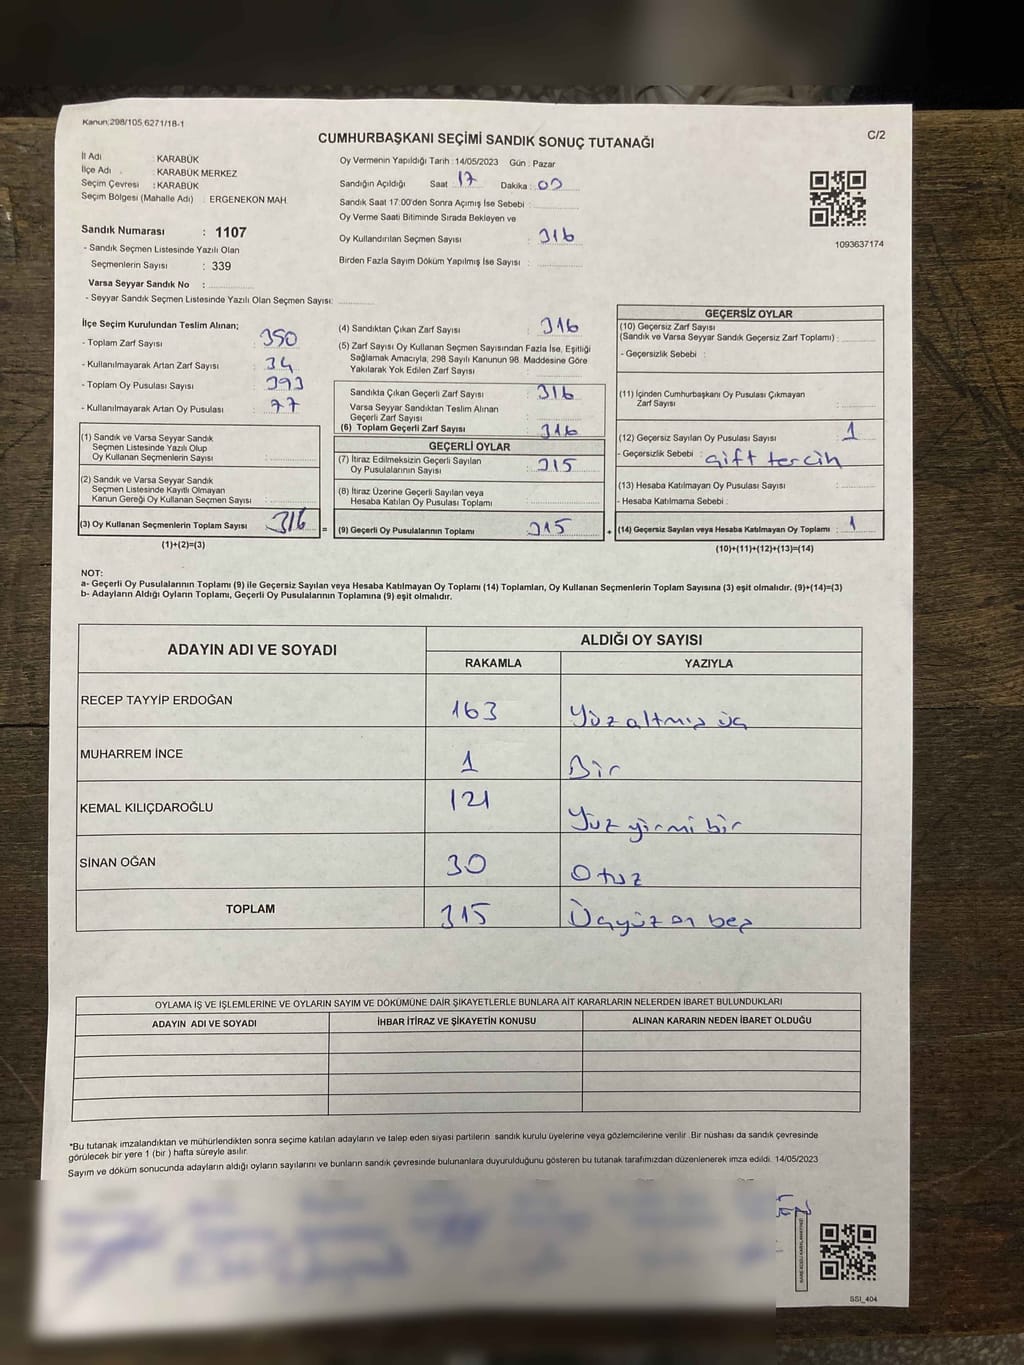 Kanun,298/105,6271/18-1
C/2
CUMHURBAŞKANI SEÇİMİ SANDIK SONUÇ TUTANAĞI
İl Adı : KARABÜK
İlçe Adı : KARABÜK MERKEZ
Seçim Çevresi : KARABÜK
Seçim Bölgesi (Mahalle Adı) : ERGENEKON MAH
Sandık Numarası : 1107
- Sandık Seçmen Listesinde Yazılı Olan
Seçmenlerin Sayısı : 339
Varsa Seyyar Sandık No :
- Seyyar Sandık Seçmen Listesinde Yazılı Olan Seçmen Sayısı:
Oy Vermenin Yapıldığı Tarih : 14/05/2023 Gün : Pazar
Sandığın Açıldığı Saat : 17 Dakika : 00
Sandık Saat 17:00'den Sonra Açımış İse Sebebi :
Oy Verme Saati Bitiminde Sırada Bekleyen ve
Oy Kullandırılan Seçmen Sayısı : 316
Birden Fazla Sayım Döküm Yapılmış İse Sayısı :
1093637174
İlçe Seçim Kurulundan Teslim Alınan;
- Toplam Zarf Sayısı : 350
- Kullanılmayarak Artan Zarf Sayısı : 34
- Toplam Oy Pusulası Sayısı : 393
- Kullanılmayarak Artan Oy Pusulası : 77
(1) Sandık ve Varsa Seyyar Sandık
Seçmen Listesinde Yazılı Olup
Oy Kullanan Seçmenlerin Sayısı :
(2) Sandık ve Varsa Seyyar Sandık
Seçmen Listesinde Kayıtlı Olmayan
Kanun Gereği Oy Kullanan Seçmen Sayısı :
(3) Oy Kullanan Seçmenlerin Toplam Sayısı 316 =
(1)+(2)=(3)
(4) Sandıktan Çıkan Zarf Sayısı : 316
(5) Zarf Sayısı Oy Kullanan Seçmen Sayısından Fazla İse, Eşitliği
Sağlamak Amacıyla, 298 Sayılı Kanunun 98. Maddesine Göre
Yakılarak Yok Edilen Zarf Sayısı :
Sandıkta Çıkan Geçerli Zarf Sayısı : 316
Varsa Seyyar Sandıktan Teslim Alınan
Geçerli Zarf Sayısı :
(6) Toplam Geçerli Zarf Sayısı : 316
GEÇERLİ OYLAR
(7) İtiraz Edilmeksizin Geçerli Sayılan
Oy Pusulalarının Sayısı : 315
(8) İtiraz Üzerine Geçerli Sayılan veya
Hesaba Katılan Oy Pusulası Toplamı :
(9) Geçerli Oy Pusulalarının Toplamı : 315 +
GEÇERSİZ OYLAR
(10) Geçersiz Zarf Sayısı
(Sandık ve Varsa Seyyar Sandık Geçersiz Zarf Toplamı) :
- Geçersizlik Sebebi :
(11) İçinden Cumhurbaşkanı Oy Pusulası Çıkmayan
Zarf Sayısı :
(12) Geçersiz Sayılan Oy Pusulası Sayısı : 1
- Geçersizlik Sebebi : çift tercih
(13) Hesaba Katılmayan Oy Pusulası Sayısı :
- Hesaba Katılmama Sebebi :
(14) Geçersiz Sayılan veya Hesaba Katılmayan Oy Toplamı : 1
(10)+(11)+(12)+(13)=(14)
NOT:
a- Geçerli Oy Pusulalarının Toplamı (9) ile Geçersiz Sayılan veya Hesaba Katılmayan Oy Toplamı (14) Toplamları, Oy Kullanan Seçmenlerin Toplam Sayısına (3) eşit olmalıdır. (9)+(14)=(3)
b- Adayların Aldığı Oyların Toplamı, Geçerli Oy Pusulalarının Toplamına (9) eşit olmalıdır.
ADAYIN ADI VE SOYADI
ALDIĞI OY SAYISI
RAKAMLA YAZIYLA
RECEP TAYYİP ERDOĞAN 163 Yüz altmış üç
MUHARREM İNCE 1 Bir
KEMAL KILIÇDAROĞLU 121 Yüz yirmi bir
SİNAN OĞAN 30 Otuz
TOPLAM 315 Üçyüz on beş
OYLAMA İŞ VE İŞLEMLERİNE VE OYLARIN SAYIM VE DÖKÜMÜNE DAİR ŞİKAYETLERLE BUNLARA AİT KARARLARIN NELERDEN İBARET BULUNDUKLARI
ADAYIN ADI VE SOYADI İHBAR İTİRAZ VE ŞİKAYETİN KONUSU ALINAN KARARIN NEDEN İBARET OLDUĞU
*Bu tutanak imzalandıktan ve mühürlendikten sonra seçime katılan adayların ve talep eden siyasi partilerin sandık kurulu üyelerine veya gözlemcilerine verilir. Bir nüshası da sandık çevresinde
görülecek bir yere 1 (bir) hafta süreyle asılır.
Sayım ve döküm sonucunda adayların aldığı oyların sayılarını ve bunların sandık çevresinde bulunanlara duyurulduğunu gösteren bu tutanak tarafımızdan düzenlenerek imza edildi. 14/05/2023
SSI_404